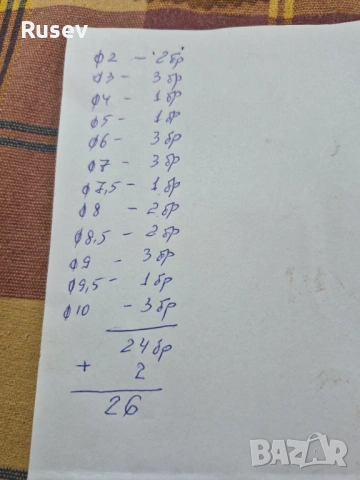 Rusev
ф2 - 2бр
ф3 - 3бр
ф4 - 1бр
ф5 - 1бр
ф6 - 3бр
ф7 - 3бр
ф7,5 - 1бр
ф8 - 2бр
ф8,5 - 2бр
ф9 - 3бр
ф9,5 - 1бр
ф10 - 3бр
24бр
+ 2
26
BAZAR